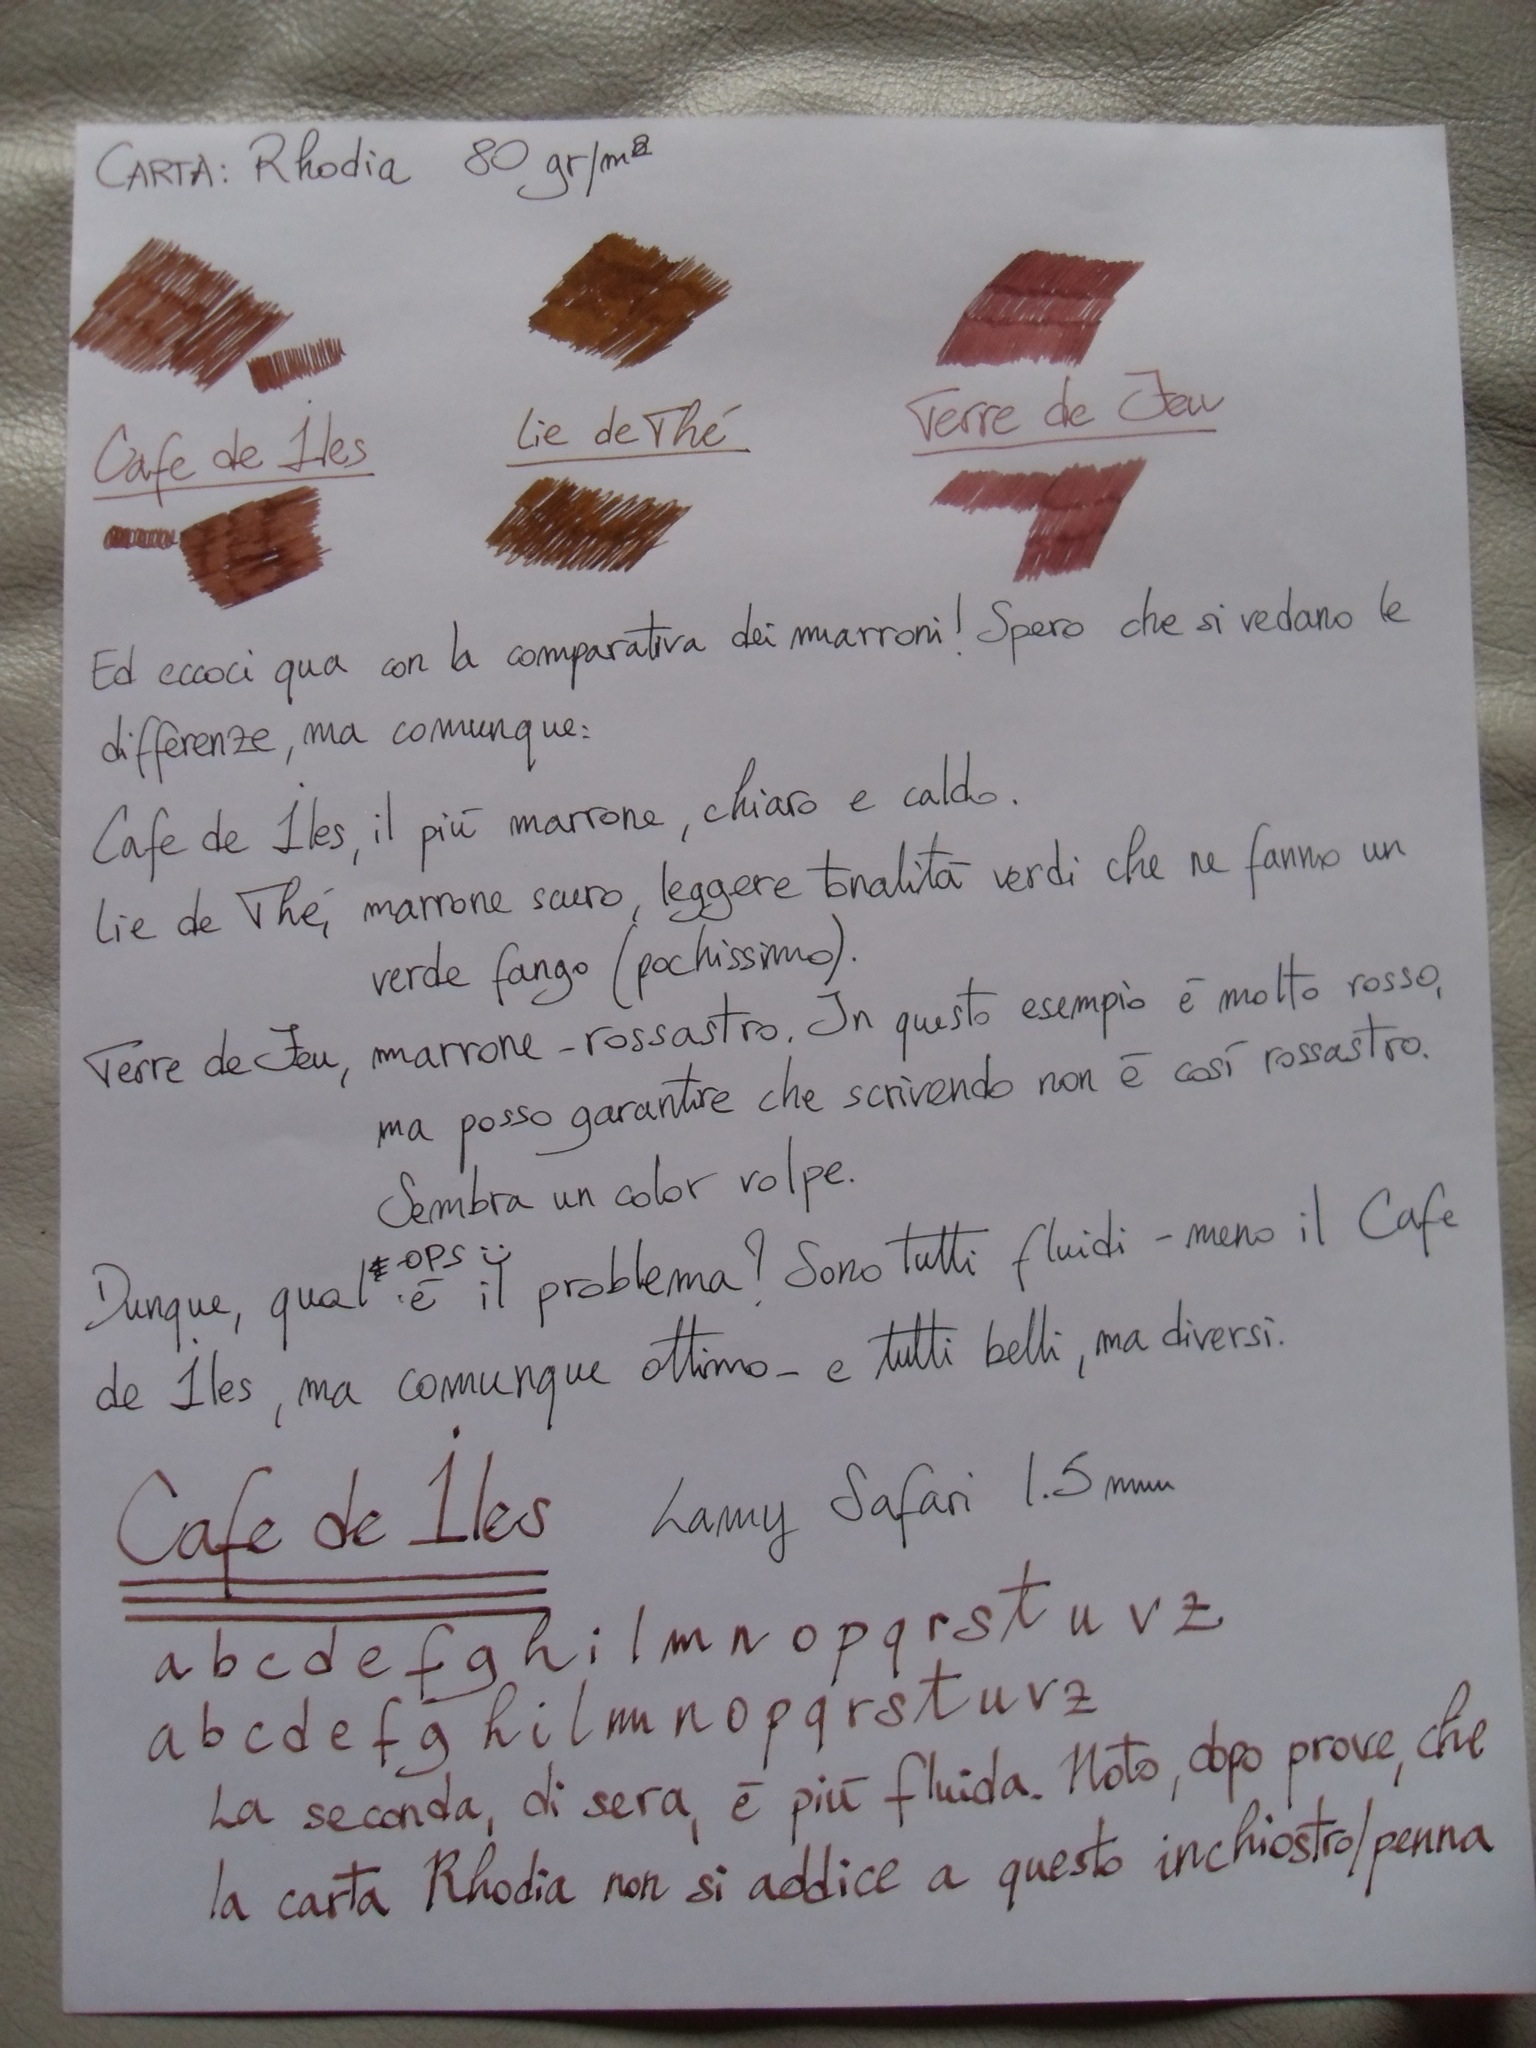 CARTA: Rhodia 80 gr/m²
Cafe de Iles Lie de Thé Terre de Feu
Ed eccoci qua con la comparativa dei marroni! Spero che si vedano le
differenze, ma comunque:
Cafe de Iles, il più marrone, chiaro e caldo.
Lie de Thé, marrone scuro, leggere tonalità verdi che ne fanno un
verde fango (pochissimo).
Terre de Feu, marrone-rossastro. In questo esempio è molto rosso,
ma posso garantire che scrivendo non è così rossastro.
Sembra un color volpe.
OPS
Dunque, qual è il problema? Sono tutti fluidi - meno il Cafe
de Iles, ma comunque ottimo - e tutti belli, ma diversi.
Cafe de Iles Lamy Safari 1.5 mm
a b c d e f g h i l m n o p q r s t u v z
a b c d e f g h i l m n o p q r s t u v z
La seconda, di sera, è più fluida. Noto, dopo prove, che
la carta Rhodia non si addice a questo inchiostro/penna